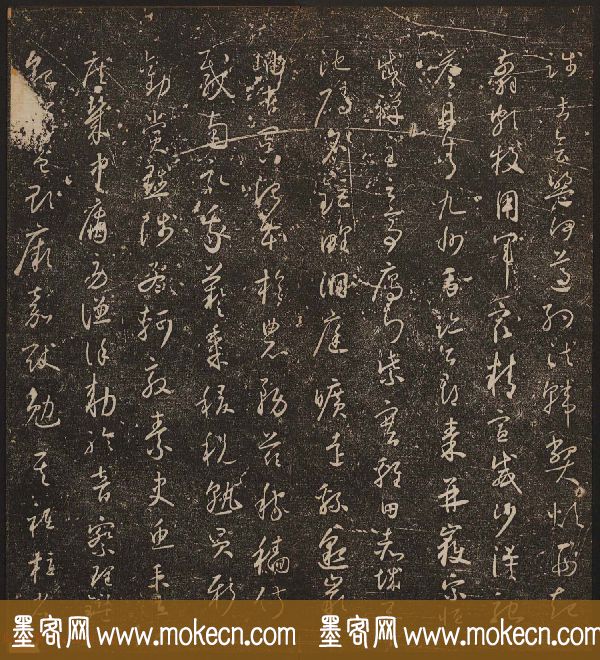 踐土會盟何遵約法韓弊煩刑起
翦頗牧用軍最精宣威沙漠馳
譽丹青九州禹跡百郡秦并嶽宗恒
岱禪主云亭雁門紫塞雞田赤城
池碣石鉅野洞庭曠遠綿邈巖
岫杳冥治本於農務茲稼穡俶
載南畝我藝黍稷稅熟貢新
勸賞黜陟孟軻敦素史魚秉直
庶幾中庸勞謙謹敕聆音察理鑒
貌色貽厥嘉猷勉其祗植
墨客网 www.mokecn.com 墨客网 www.mokecn.com